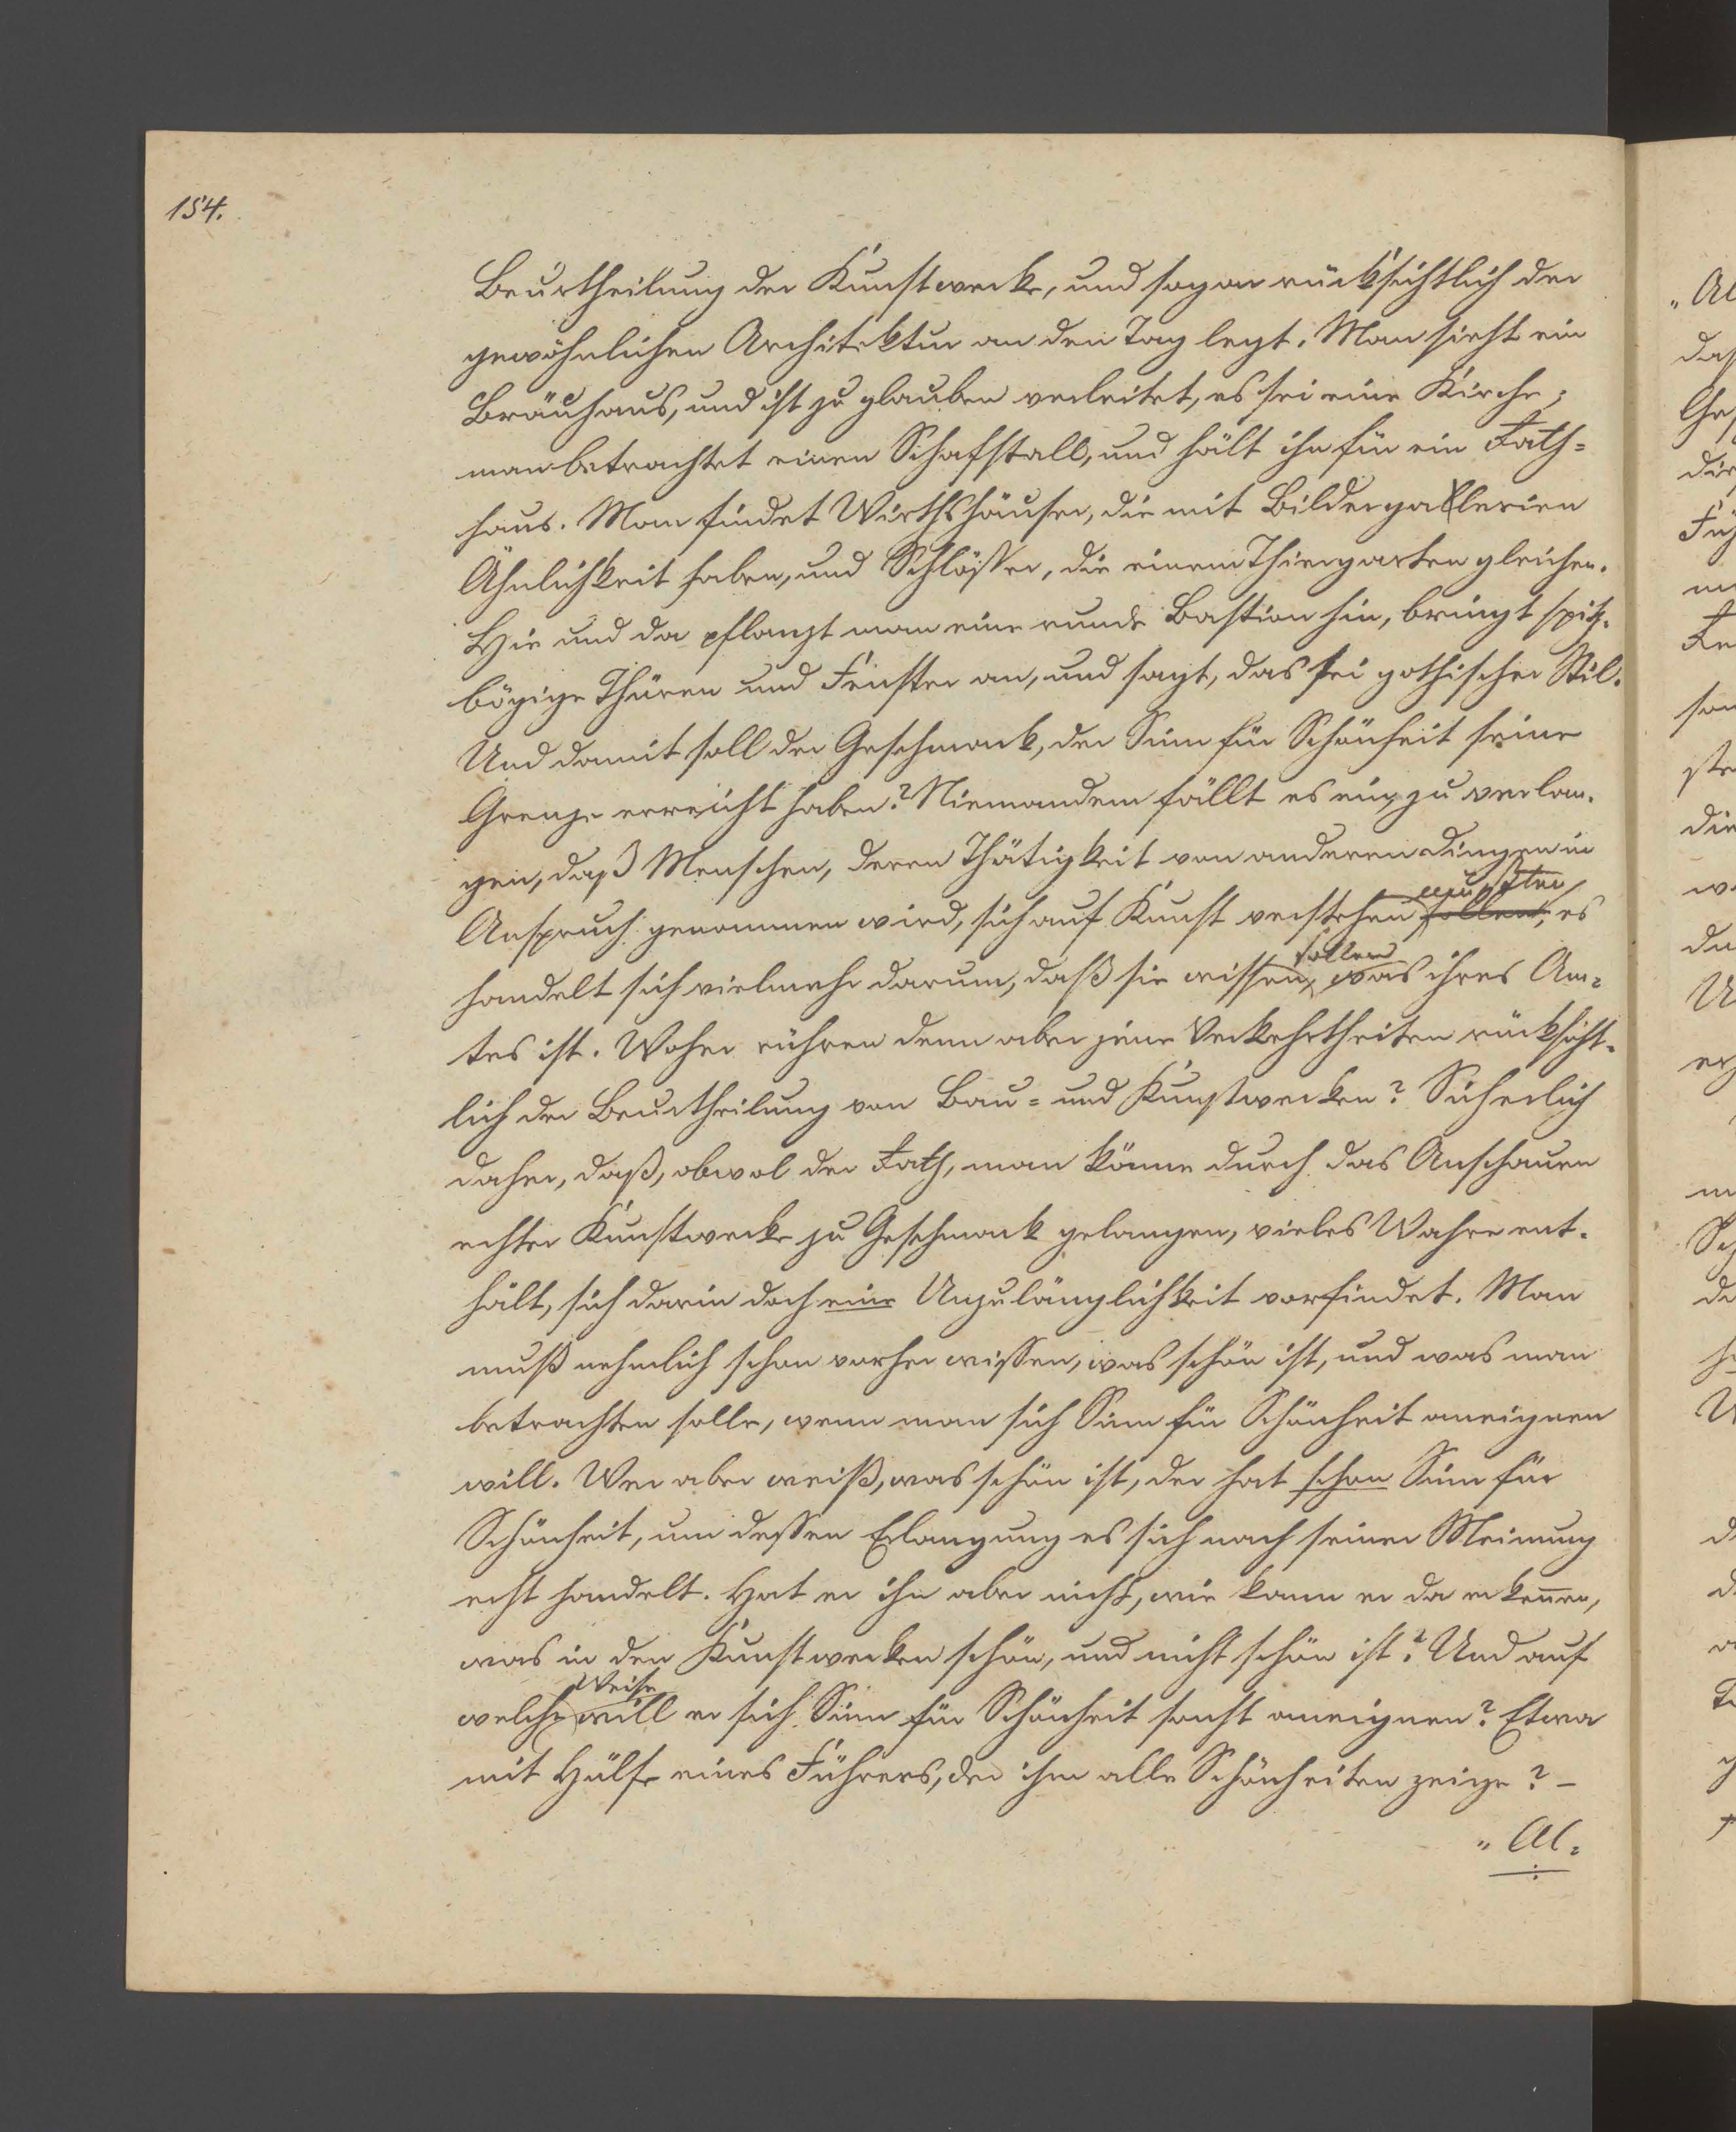 154.
Beurtheilung der Kunstwerke, und sogar rücksichtlich der
gewöhnlichen Architektur an den Tag legt. Man sieht ein
Bräuhaus, und ist zu glauben verleitet, es sei eine Kirche;
man betrachtet einen Schafstall, und hält ihn für ein Rath-
haus. Man findet Wirthshäuser, die mit Bildergallerien
Ähnlichkeit haben, und Schlösser, die einem Thiergarten gleichen.
Hie und da pflanzt man eine runde Bastion hin, bringt spitz-
bögige Thüren und Fenster an, und sagt, das sei gothischer Stil.
Und damit soll der Geschmack, der Sinn für Schönheit seine
Grenze erreicht haben? Niemandem fällt es ein zu verlan-
gen, daß Menschen, deren Thätigkeit von anderen Dingen in
Anspruch genommen wird, sich auf Kunst verstehen müßten, es
handelt sich vielmehr darum, daß sie wissen sollen, was ihres Am-
tes ist. Woher rühren denn aber jene Verkehrtheiten rücksicht-
lich der Beurtheilung von Bau- und Kunstwerken? Sicherlich
daher, daß, obwol der Rath, man könne durch das Anschauen
echter Kunstwerke zu Geschmack gelangen, vieles Wahre ent-
hält, sich darin doch eine Unzulänglichkeit vorfindet. Man
muß nehmlich schon vorher wissen, was schön ist, und was man
betrachten solle, wenn man sich Sinn für Schönheit aneignen
will. Wer aber weiß, was schön ist, der hat schon Sinn für
Schönheit, um dessen Erlangung es sich nach seiner Meinung
erst handelt. Hat er ihn aber nicht, wie kann er da erkennen,
was in den Kunstwerken schön, und nicht schön ist? Und auf
welche Weise will er sich Sinn für Schönheit sonst aneignen? Etwa
mit Hülfe eines Führers, der ihm alle Schönheiten zeige? –
„Al-